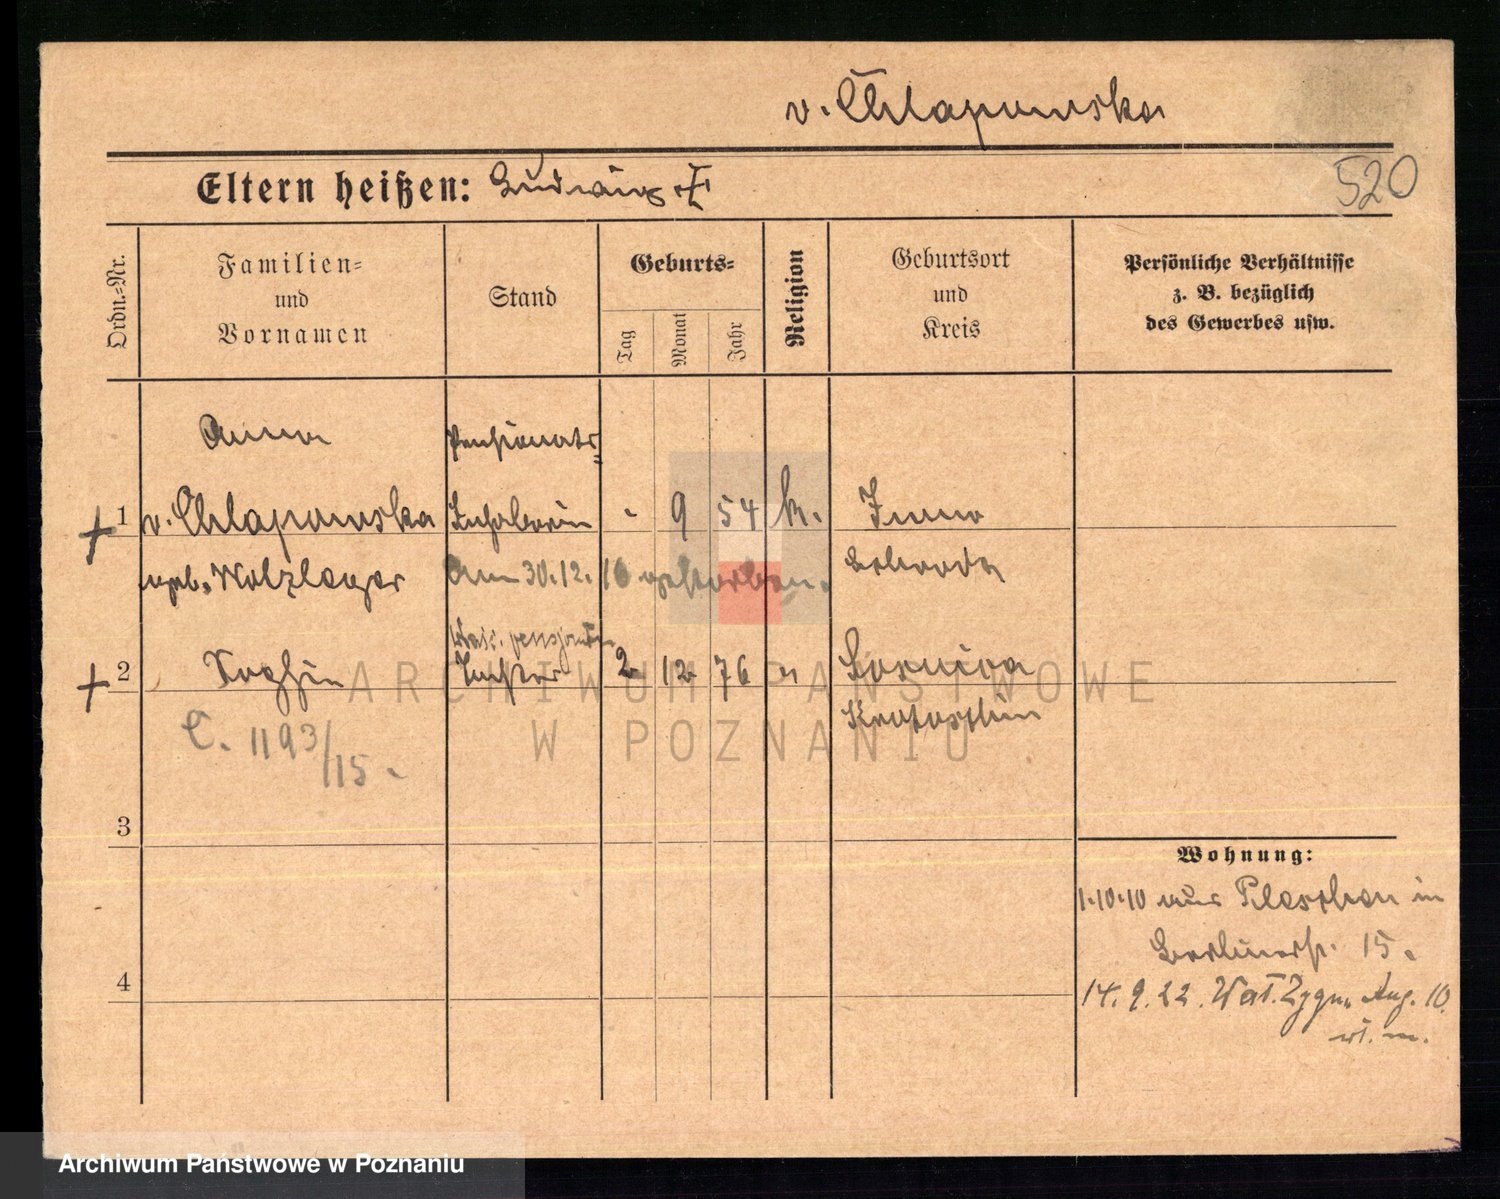 v. Chlapowska
520
Eltern heißen: Ludwig +
Ordn.-Nr.
Familien-
und
Vornamen
Stand
Geburts-
Tag
Monat
Jahr
Religion
Geburtsort
und
Kreis
Persönliche Verhältnisse
z. B. bezüglich
des Gewerbes usw.
Anna Pensionats-
+ 1 v. Chlapowska Inhaberin - 9 54 k.
geb. Wolzleger Am 30.12.16 gestorben. Schroda
pensjonatu
+ 2 Sophie Tochter 2 12 76 Sosnica
Krotoschin
C. 1193/15.
3
4
Wohnung:
1.10.10 aus Pleschen in
Berlinerstr. 15.
14.9.22. Wał. Zygm. Aug. 10.
ARCHIWUM PAŃSTWOWE
W POZNANIU
Archiwum Państwowe w Poznaniu